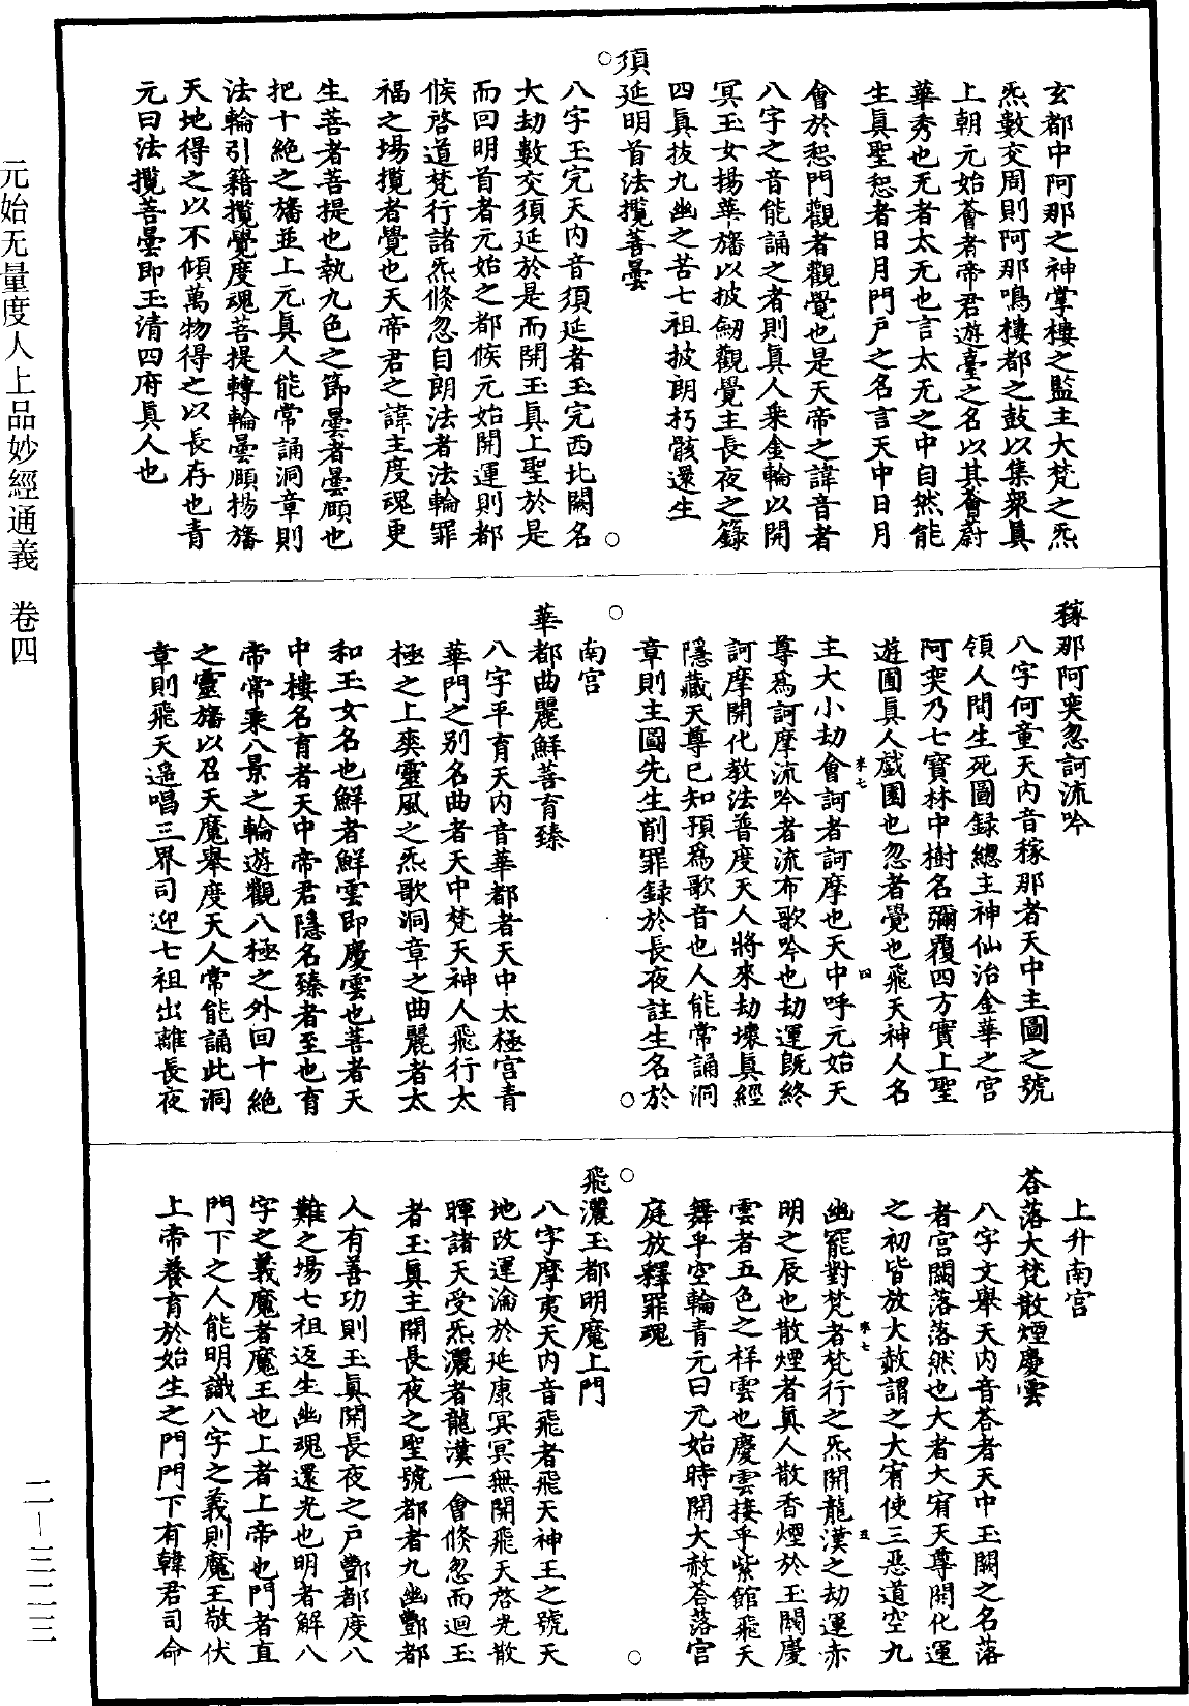 玄都中阿那之神掌樓之監主大梵之炁
炁數交周則阿那鳴樓都之鼓以集衆真
上朝元始薈者帝君遊臺之名以其薈蔚
華秀也无者太无也言太无之中自然能
生真聖惒者日月門戶之名言天中日月
會於惒門觀者觀覺也是天帝之諱音者
八字之音能誦之者則真人乘金輪以開
冥玉女揚華旛以披劒觀覺主長夜之籙
四真拔九幽之苦七祖披朗朽骸還生
須延明首法攬菩曇
八字玉完天内音須延者玉完西北闕名
大劫數交須延於是而開玉真上聖於是
而回明首者元始之都候元始開運則都
候啓道梵行諸炁倏忽自朗法者法輪罪
福之場攬者覺也天帝君之諱主度魂更
生菩者菩提也執九色之節曇者曇願也
把十絶之旛並上元真人能常誦洞章則
法輪引籍攬覺度魂菩提轉輪曇願揚旛
天地得之以不傾萬物得之以長存也青
元曰法攬菩曇即玉清四府真人也
稼那阿奕忽訶流吟
八字何童天内音稼那者天中主圖之號
領人間生死圖録總主神仙治金華之宮
阿奕乃七寶林中樹名彌覆四方實上聖
遊圃真人戲園也忽者覺也飛天神人名
主大小劫會訶者訶摩也天中呼元始天
尊爲訶摩流吟者流布歌吟也劫運既終
訶摩開化教法普度天人將來劫壞真經
隱藏天尊已知預爲歌音也人能常誦洞
章則主圖先生削罪録於長夜註生名於
南宫
華都曲麗鮮菩育臻
八字平育天内音華都者天中太極宮青
華門之别名曲者天中梵天神人飛行太
極之上奕靈風之炁歌洞章之曲麗者太
和玉女名也鮮者鮮雲即慶雲也菩者天
中樓名育者天中帝君隱名臻者至也育
帝常乘八景之輪遊觀八極之外回十絶
之靈旛以召天魔舉度天人常能誦此洞
章則飛天遥唱三界司迎七祖出離長夜
上升南宫
荅落大梵散煙慶雲
八字文舉天内音荅者天中玉闕之名落
者宮闕落落然也大者大宥天尊開化運
之初皆放大赦謂之大宥使三惡道空九
幽罷對梵者梵行之炁開龍漢之劫運赤
明之辰也散煙者真人散香煙於玉闕慶
雲者五色之祥雲也慶雲接乎紫館飛天
舞乎空輪青元曰元始時開大赦荅落宮
庭放釋罪魂
飛灑玉都明魔上門
八字摩夷天内音飛者飛天神王之號天
地改運淪於延康冥冥無開飛天啓光散
暉諸天受炁灑者龍漢一會倏忽而迴玉
者玉真主開長夜之聖號都者九幽酆都
人有善功則玉真開長夜之戶酆都度八
難之場七祖返生幽魂還光也明者解八
字之義魔者魔王也上者上帝也門者直
門下之人能明識八字之義則魔王敬伏
上帝養育於始生之門門下有韓君司命
元始无量度人上品妙經通義 卷四
二—三二三